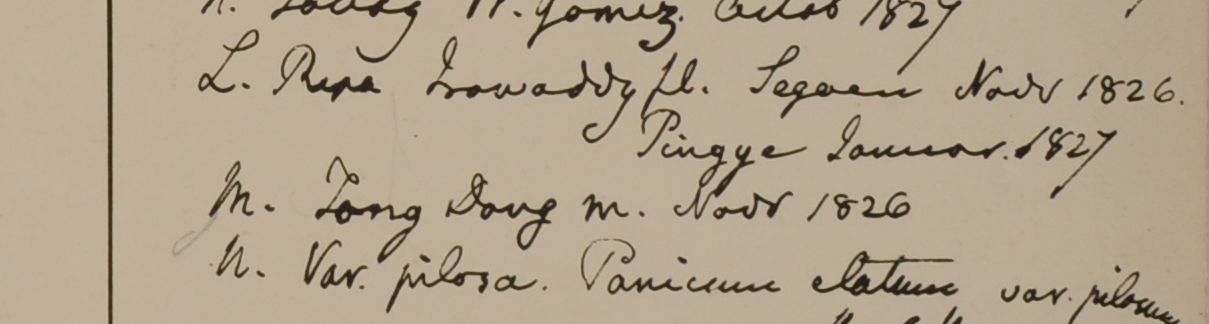 K. Tavoy W. Gomez. Octob 1827
L. Ripa Irawaddy fl. Segaen Novr 1826.
Pingye Januar. 1827
M. Tong Dong m. Novr 1826
N. Var. pilosa. Panicum elatum var. pilosum